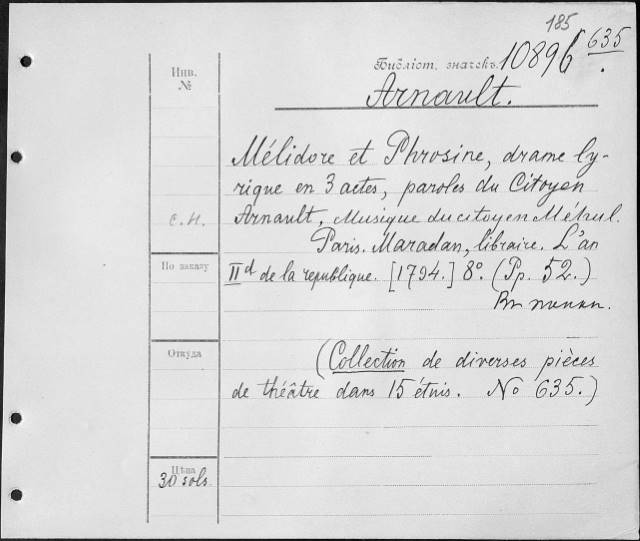 185
Библіот. значекъ. 10896 635.
Arnault.
Инв.
№
Mélidore et Phrosine, drame ly-
rique en 3 actes, paroles du Citoyen
Arnault, Musique du citoyen Méhul.
с.н.
Paris. Maradan, libraire. L'an
По заказу
IId de la republique. [1794.] 8º. (Pp. 52.)
Въ папкѣ.
Откуда
(Collection de diverses pièces
de théâtre dans 15 étuis. No 635.)
Цѣна
30 sols